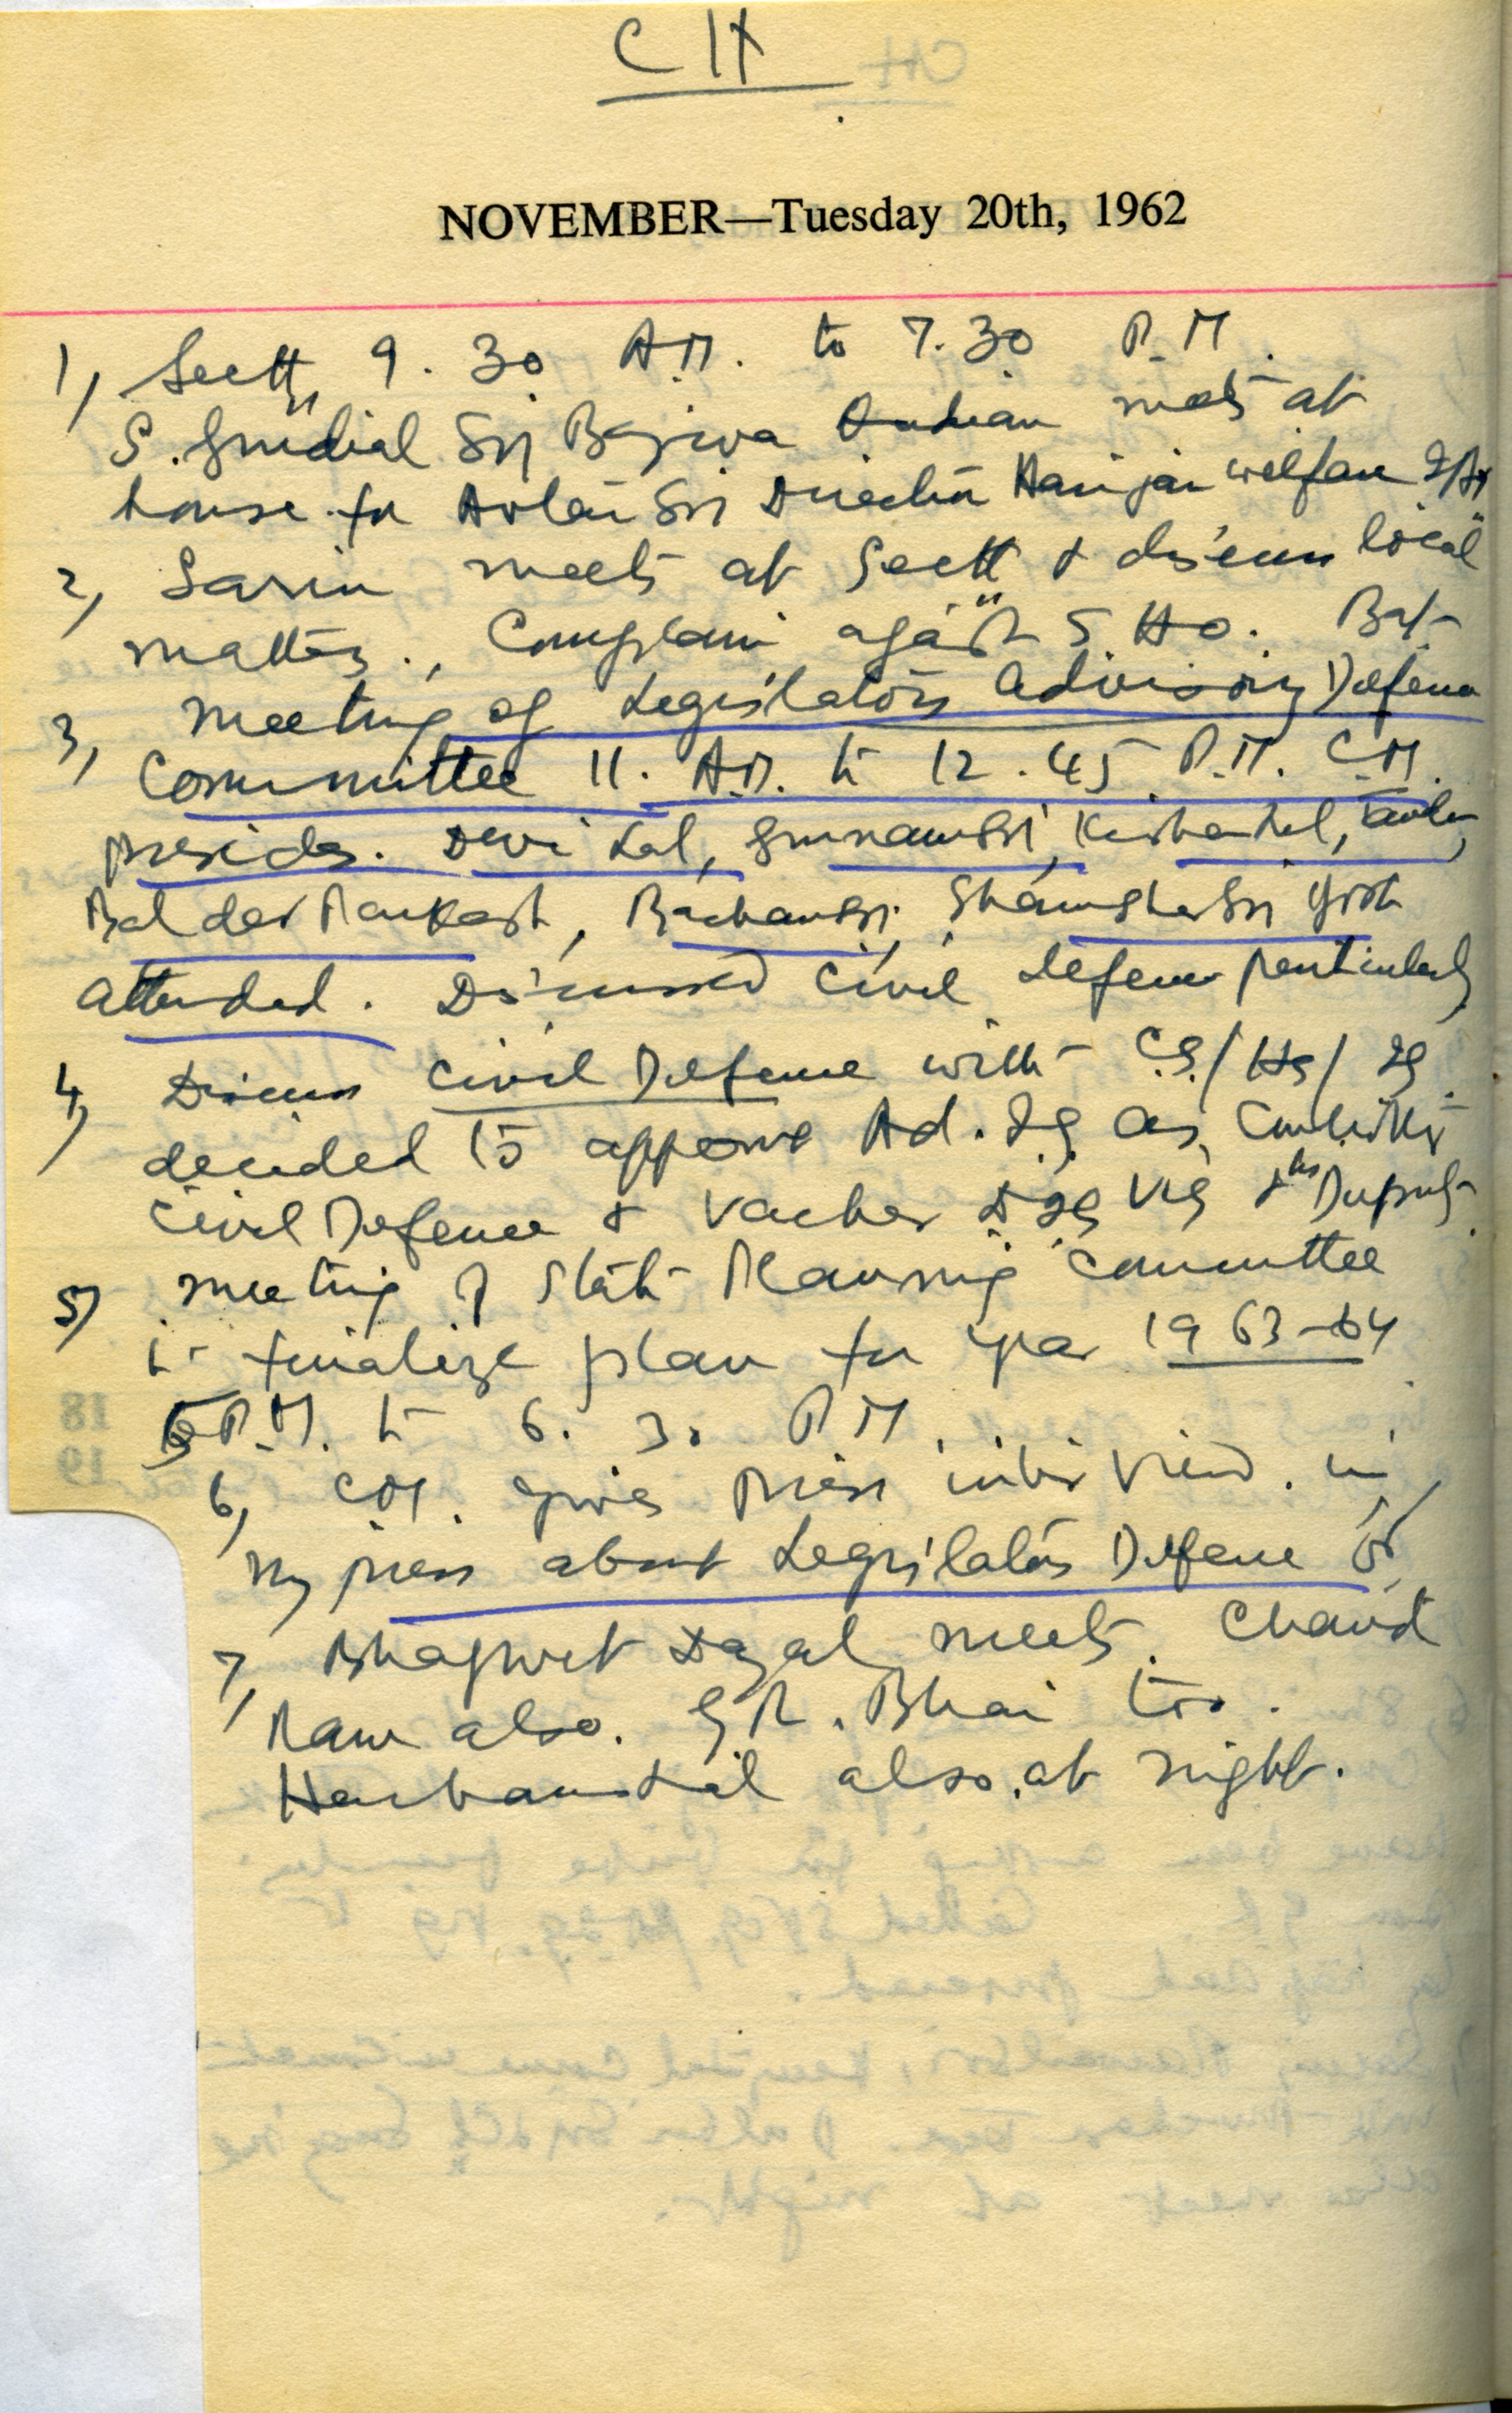 CH
NOVEMBER—Tuesday 20th, 1962
1, Sectt, 9.30 A.M. to 7.30 P.M.
S. Gurdial Sri Bajwa meets at
house for Avtar Sri Director Harijan welfare
2, Sarin meets at Sectt & discuss local
matters., Complain against S Ho.
3, Meeting of Legislators Advisory Defence
Committee 11. A.M. to 12.45 P.M. C.M.
presides. Devi Lal, Gurnam Sri,
Baldev Parkash, Bachan Sri, Shamsher Sri Josh
attended. Discussed Civil Defence particularly
4, Discuss Civil Defence with C.S/HS/IG
decided to appoint Ad. IG as
Civil Defence & Vacher DIG Vig & his Deputy
5, meeting of State Planning Committee
to finalize plan for year 1963-64
5 P.M. to 6.30 P.M.
6, C.M. gives Press interview. in
my press about Legislators Defence
7, Bhagwat Dayal meets. Chand
Ram also. G R. Bhai too.
Harbans Lal also at night.
18
19